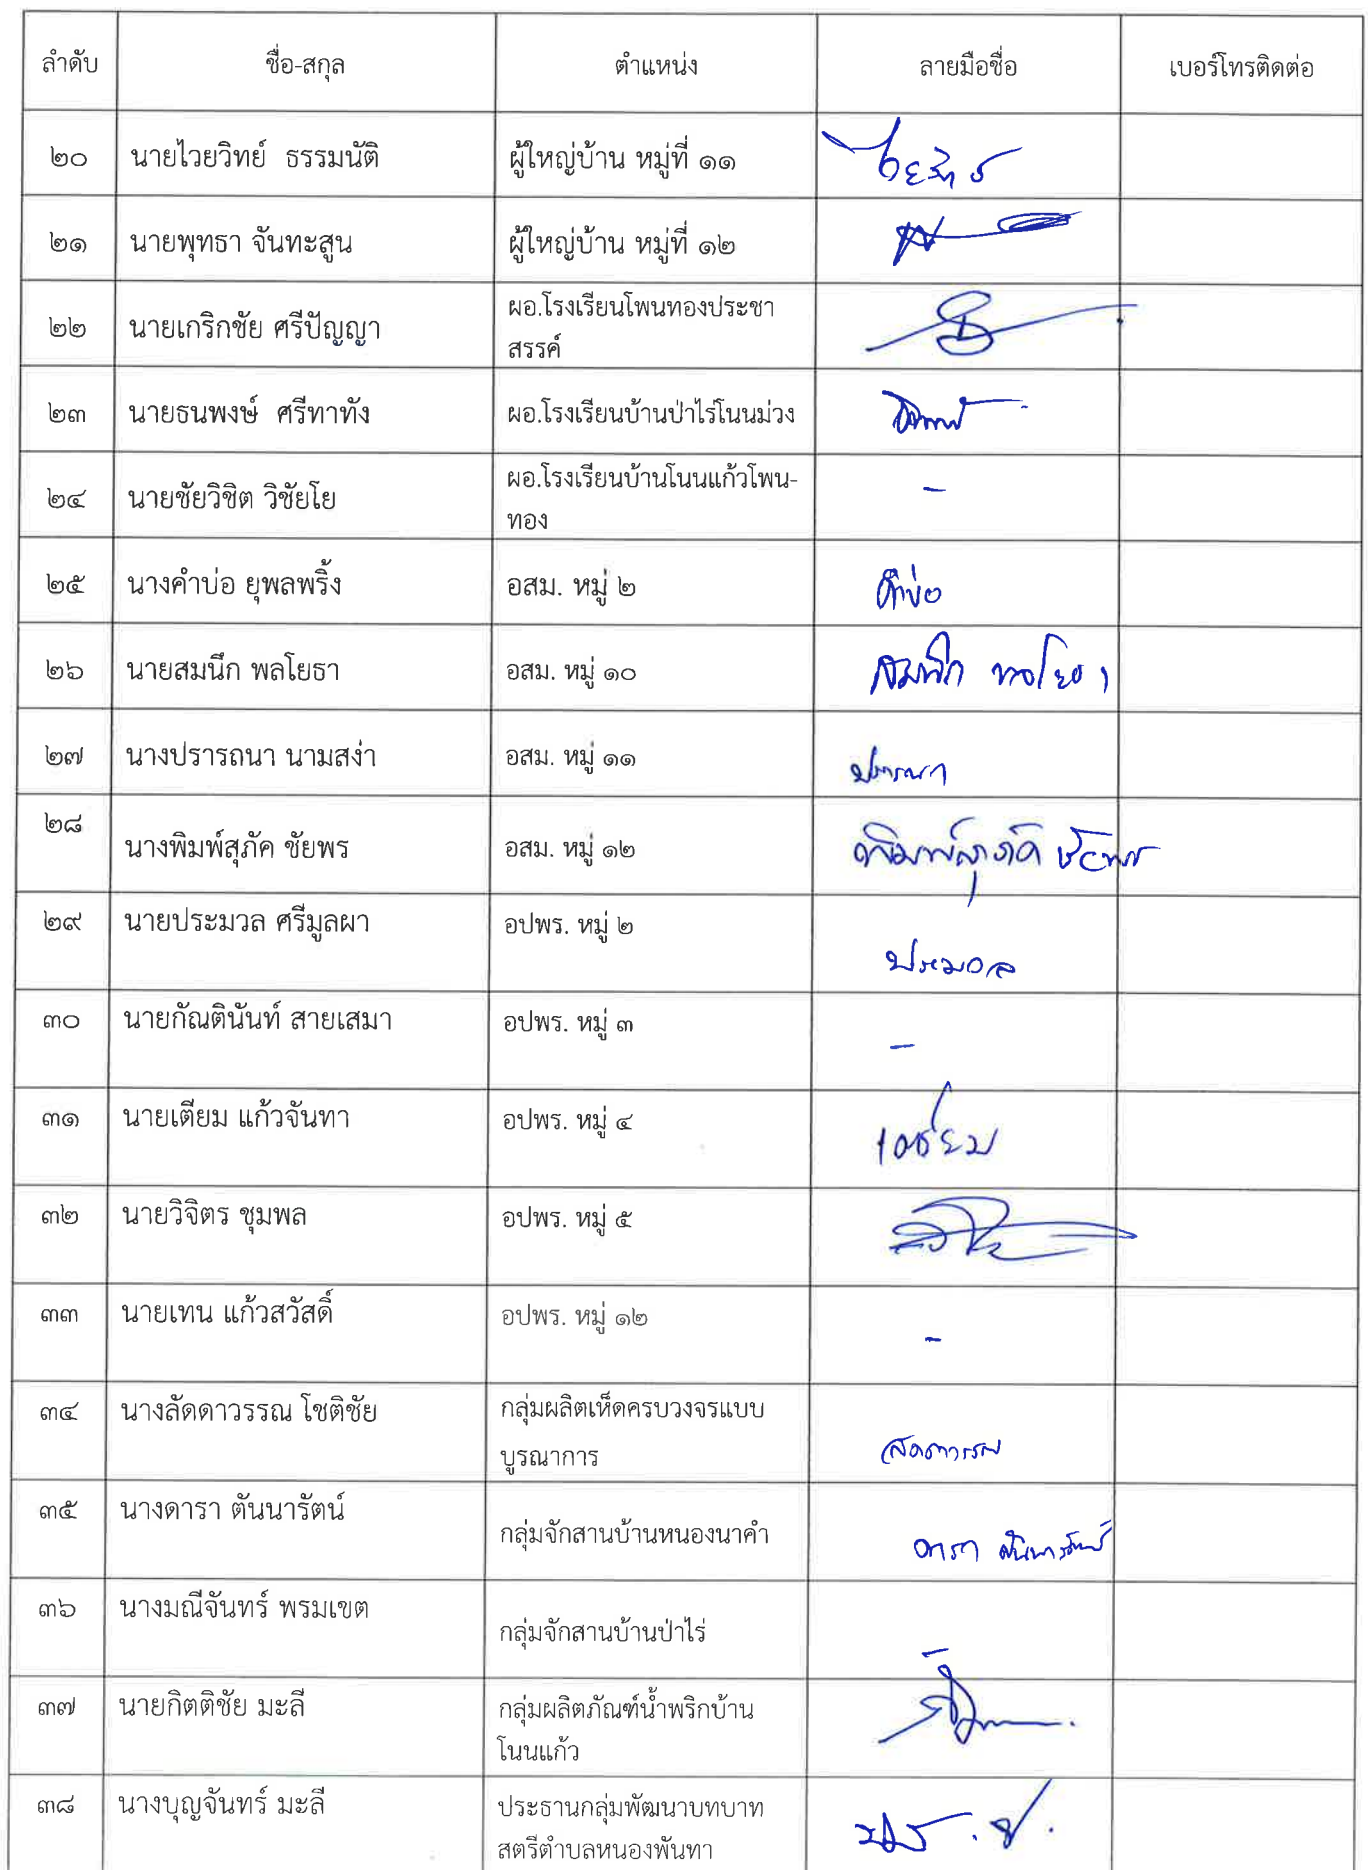 ลำดับ ชื่อ-สกุล ตำแหน่ง ลายมือชื่อ เบอร์โทรติดต่อ
๒๐ นายไวยวิทย์ ธรรมนัติ ผู้ใหญ่บ้าน หมู่ที่ ๑๑
๒๑ นายพุทธา จันทะสูน ผู้ใหญ่บ้าน หมู่ที่ ๑๒
๒๒ นายเกริกชัย ศรีปัญญา ผอ.โรงเรียนโพนทองประชา
สรรค์
๒๓ นายธนพงษ์ ศรีทาทัง ผอ.โรงเรียนบ้านป่าไร่โนนม่วง
๒๔ นายชัยวิชิต วิชัยโย ผอ.โรงเรียนบ้านโนนแก้วโพน- -
ทอง
๒๕ นางคำบ่อ ยุพลพริ้ง อสม. หมู่ ๒ คำบ่อ
๒๖ นายสมนึก พลโยธา อสม. หมู่ ๑๐ สมนึก พลโยธา
๒๗ นางปรารถนา นามสง่า อสม. หมู่ ๑๑
๒๘ นางพิมพ์สุภัค ชัยพร อสม. หมู่ ๑๒ พิมพ์สุภัค ชัยพร
๒๙ นายประมวล ศรีมูลผา อปพร. หมู่ ๒ ประมวล
๓๐ นายกัณตินันท์ สายเสมา อปพร. หมู่ ๓ -
๓๑ นายเตียม แก้วจันทา อปพร. หมู่ ๔ เตียม
๓๒ นายวิจิตร ชุมพล อปพร. หมู่ ๕
๓๓ นายเทน แก้วสวัสดิ์ อปพร. หมู่ ๑๒ -
๓๔ นางลัดดาวรรณ โชติชัย กลุ่มผลิตเห็ดครบวงจรแบบ
บูรณาการ ลัดดาวรรณ
๓๕ นางดารา ตันนารัตน์ กลุ่มจักสานบ้านหนองนาคำ ดารา ตันนารัตน์
๓๖ นางมณีจันทร์ พรมเขต กลุ่มจักสานบ้านป่าไร่ -
๓๗ นายกิตติชัย มะลี กลุ่มผลิตภัณฑ์น้ำพริกบ้าน
โนนแก้ว
๓๘ นางบุญจันทร์ มะลี ประธานกลุ่มพัฒนาบทบาท
สตรีตำบลหนองพันทา